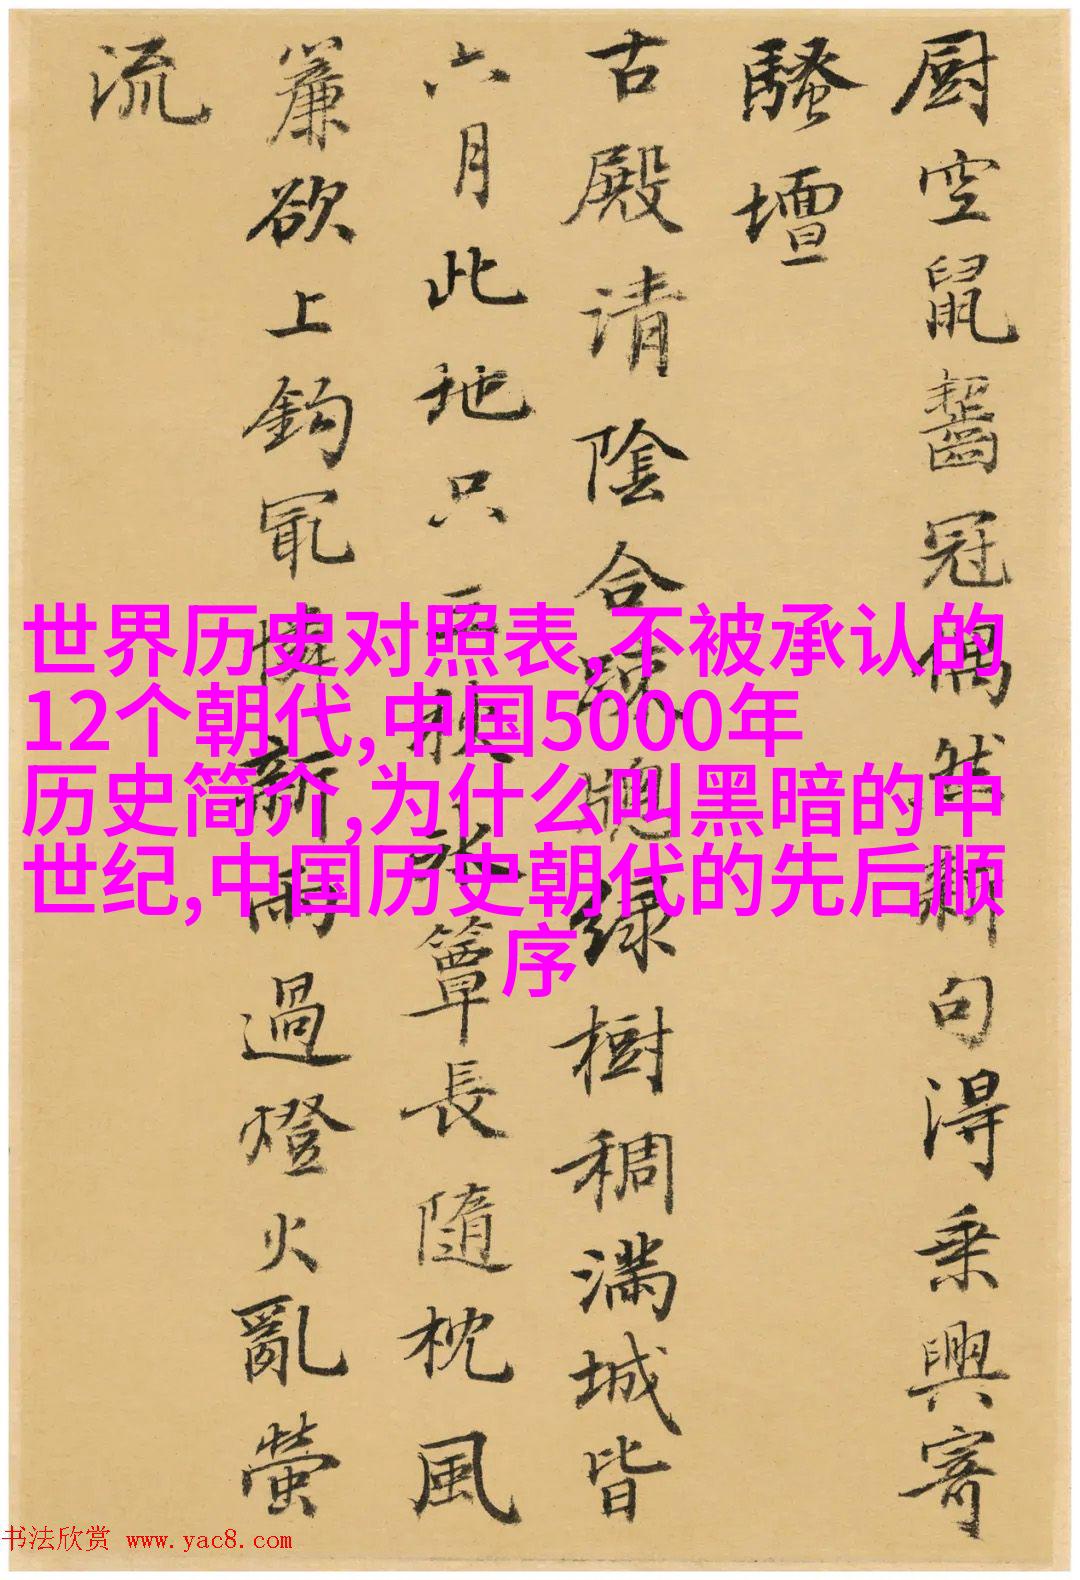 厨空鼠齧冠偶然新句得乗興寄
騷壇
古殿清陰合疎窓緑樹稠滿城皆
六月此地只三秋冰簟長隨枕風
簾欲上鈎冣憐新雨過燈火亂螢
流
世界历史对照表,不被承认的
12个朝代,中国5000年
历史简介,为什么叫黑暗的中
世纪,中国历史朝代的先后顺
序
书法欣赏 www.yac8.com